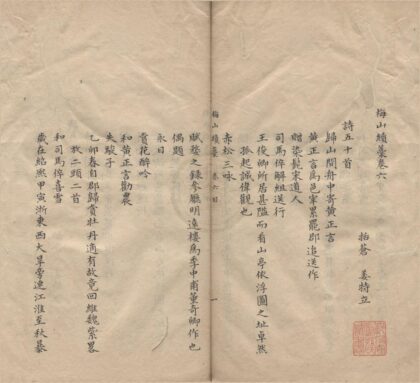 梅山續藁卷六
括蒼 姜特立
詩五十首
歸山間舟中寄黃正言
黃正言爲邑宰累罷郡追送作
贈染髭宋道人
司馬倅解組送行
王俊卿所居甚隘而看山亭依浮圖之址卓然
孤起誠偉觀也
赤松三咏
梅山續藁 卷六目
一
賦婺之錄參廳明遠樓爲季中甫董奇卿作也
偶題
永日
賞花醉吟
和黃正言勸農
失駿子
乙卯春自郡歸賞牡丹適有故竟回維魏紫畧
放二頭二首
和司馬倅喜雪
歲在紹熙甲寅浙東西大旱常連江淮至秋暴